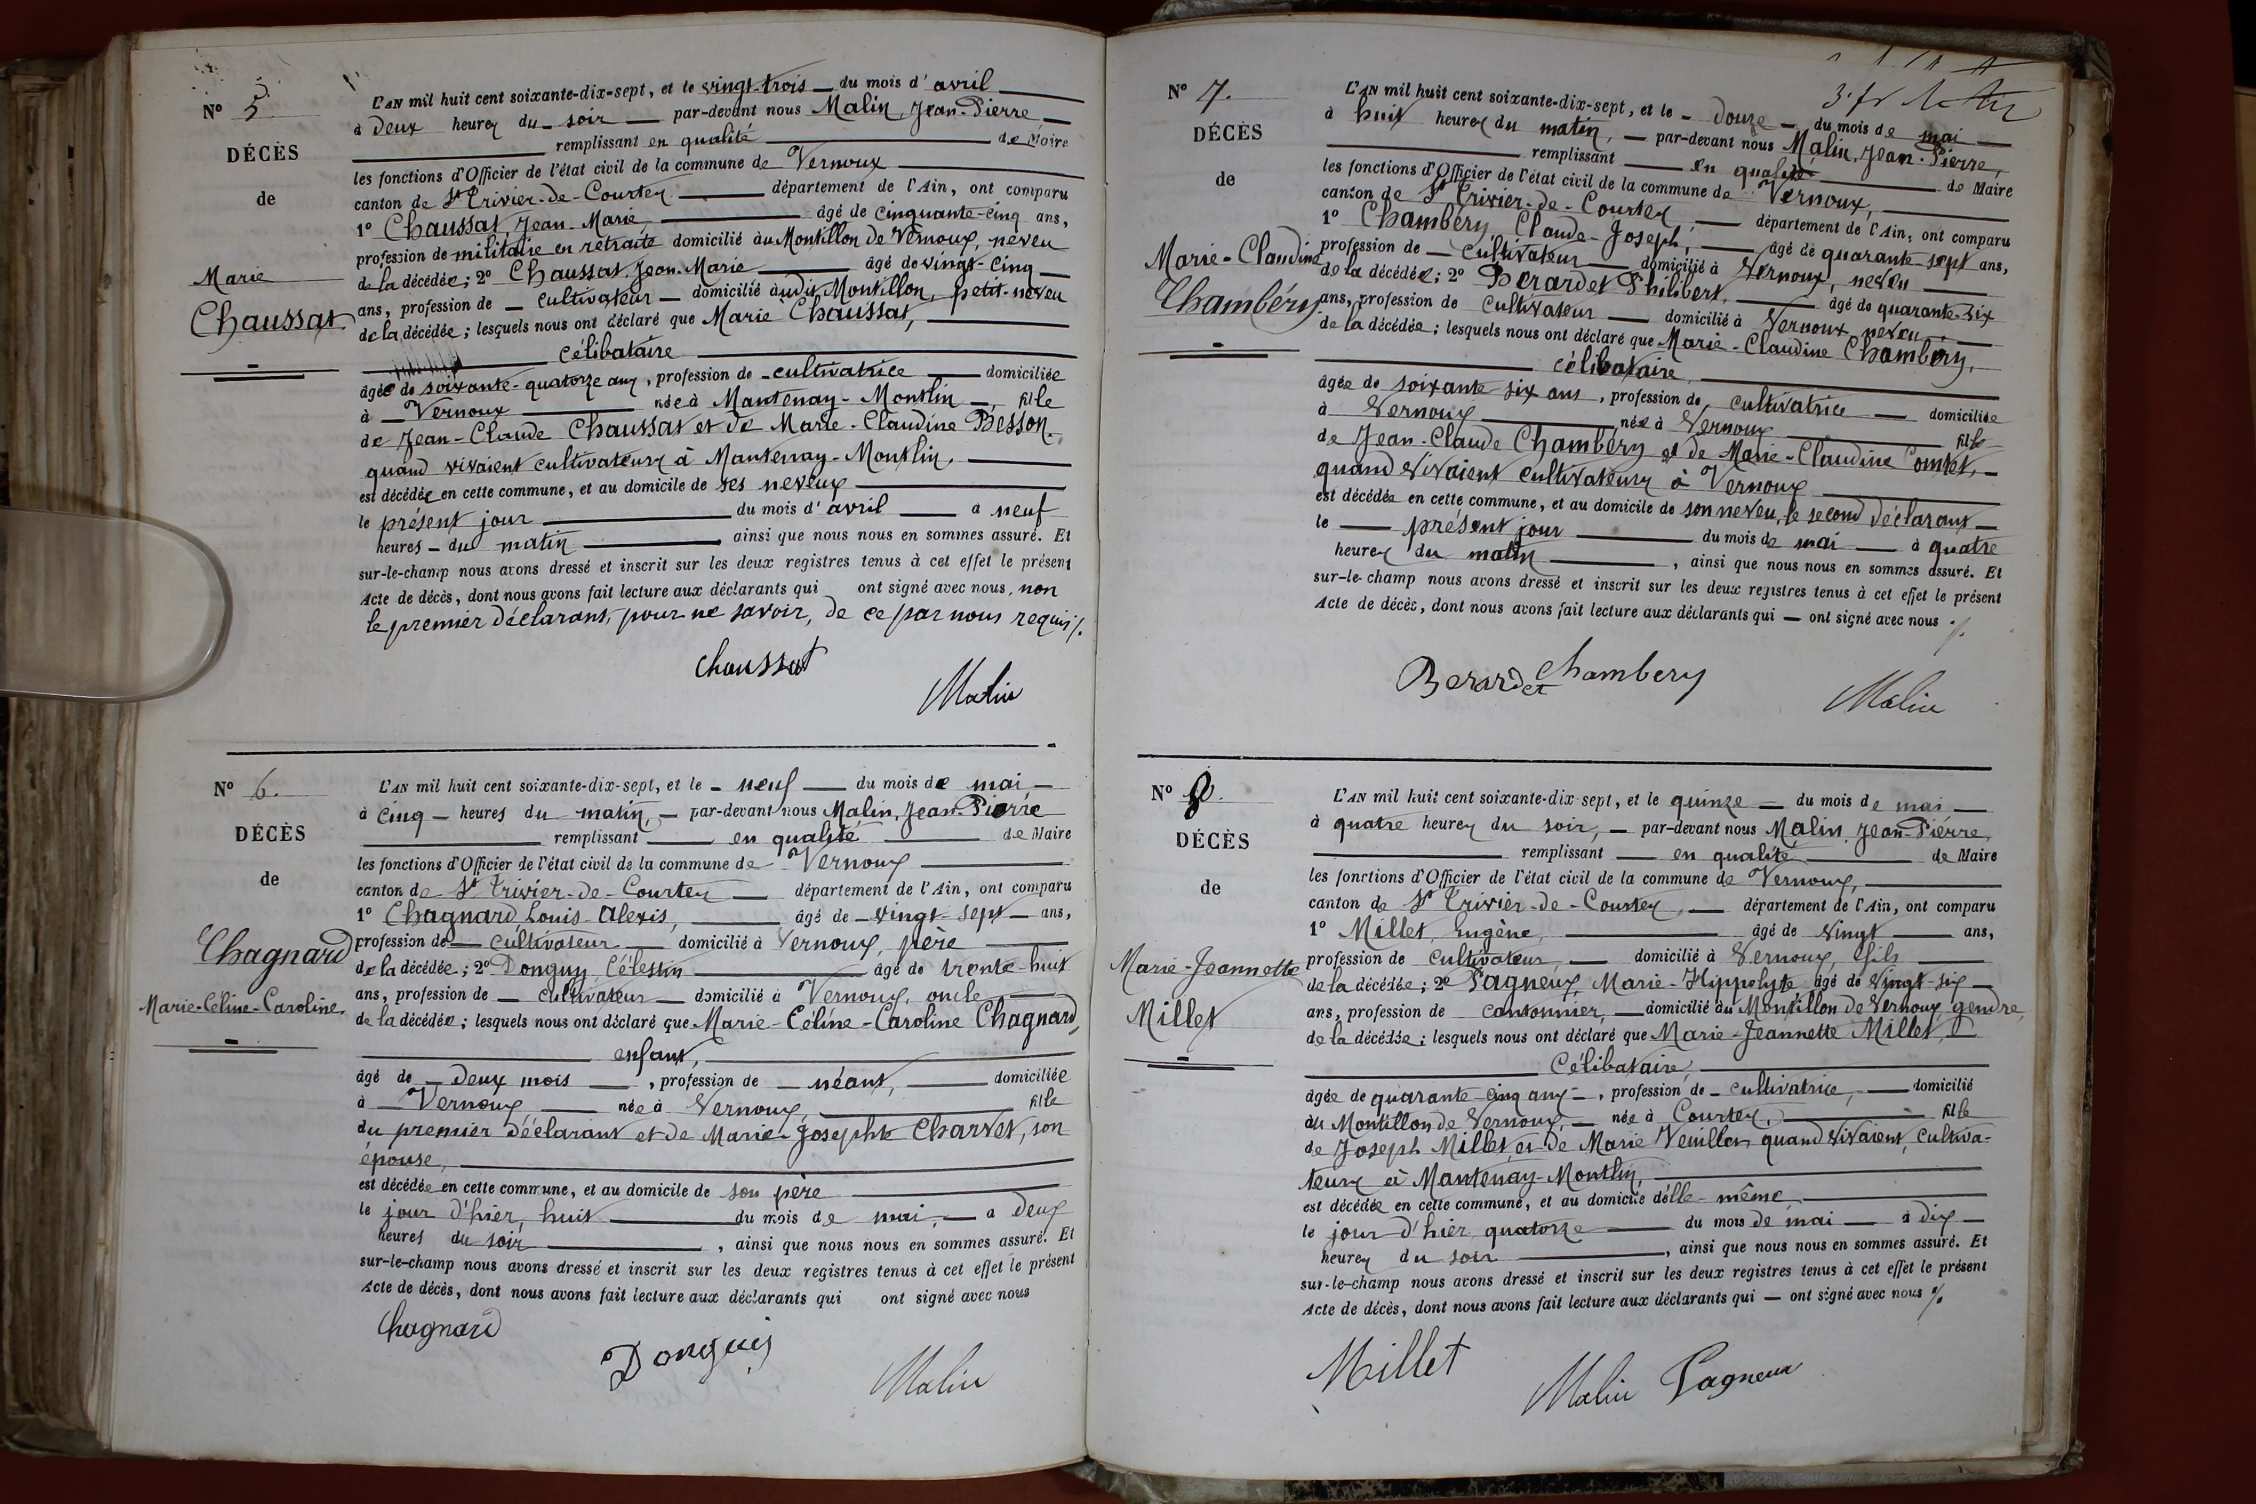 N° 5.
DÉCÈS
de
Marie
Chaussat.
L'AN mil huit cent soixante-dix-sept, et le vingt-trois du mois d'avril
à deux heures du soir par-devant nous Malin, Jean-Pierre
remplissant en qualité de Maire
les fonctions d'Officier de l'état civil de la commune de Vernoux
canton de St Trivier-de-Courtes département de l'Ain, ont comparu
1° Chaussat, Jean-Marie, âgé de cinquante-cinq ans,
profession de militaire en retraite domicilié au Montillon de Vernoux, neveu
de la décédée; 2° Chaussat Jean-Marie âgé de vingt-cinq
ans, profession de cultivateur domicilié au dit Montillon, petit-neveu
de la décédée; lesquels nous ont déclaré que Marie Chaussat,
célibataire
âgée de soixante-quatorze ans, profession de cultivatrice domiciliée
à Vernoux née à Mantenay-Montlin, fille
de Jean-Claude Chaussat et de Marie-Claudine Besson
quand vivaient cultivateurs à Mantenay-Montlin.
est décédée en cette commune, et au domicile de ses neveux
le présent jour du mois d'avril à neuf
heures du matin ainsi que nous nous en sommes assuré. Et
sur-le-champ nous avons dressé et inscrit sur les deux registres tenus à cet effet le présent
Acte de décès, dont nous avons fait lecture aux déclarants qui ont signé avec nous, non
le premier déclarant, pour ne savoir, de ce par nous requis %.
Chaussat
Malin
N° 6.
DÉCÈS
de
Chagnard
Marie-Céline-Caroline.
L'AN mil huit cent soixante-dix-sept, et le neuf du mois de mai
à cinq heures du matin, par-devant nous Malin, Jean-Pierre
remplissant en qualité de Maire
les fonctions d'Officier de l'état civil de la commune de Vernoux
canton de St Trivier-de-Courtes département de l'Ain, ont comparu
1° Chagnard, Louis-Alexis, âgé de vingt-sept ans,
profession de cultivateur domicilié à Vernoux, père
de la décédée; 2° Donguy Célestin âgé de trente-huit
ans, profession de cultivateur domicilié à Vernoux, oncle
de la décédée; lesquels nous ont déclaré que Marie-Céline-Caroline Chagnard,
enfant,
âgé de deux mois, profession de néant, domiciliée
à Vernoux, née à Vernoux, fille
du premier déclarant et de Marie-Josephte Charvet, son
épouse,
est décédée en cette commune, et au domicile de son père
le jour d'hier, huit du mois de mai, à deux
heures du soir, ainsi que nous nous en sommes assuré. Et
sur-le-champ nous avons dressé et inscrit sur les deux registres tenus à cet effet le présent
Acte de décès, dont nous avons fait lecture aux déclarants qui ont signé avec nous
Chagnard
Donguis
Malin
N° 7.
DÉCÈS
de
Marie-Claudine
Chambéry.
L'AN mil huit cent soixante-dix-sept, et le douze du mois de mai
à huit heures du matin, par-devant nous Malin, Jean-Pierre,
remplissant en qualité de Maire
les fonctions d'Officier de l'état civil de la commune de Vernoux,
canton de St Trivier-de-Courtes département de l'Ain, ont comparu
1° Chambéry Claude-Joseph, âgé de quarante-sept ans,
profession de cultivateur domicilié à Vernoux, neveu
de la décédée; 2° Berardet Philibert, âgé de quarante-six
ans, profession de cultivateur domicilié à Vernoux neveu
de la décédée; lesquels nous ont déclaré que Marie-Claudine Chambéry,
célibataire,
âgée de soixante six ans, profession de cultivatrice domiciliée
à Vernoux née à Vernoux fille
de Jean-Claude Chambéry et de Marie-Claudine Comtet,
quand vivaient cultivateurs à Vernoux
est décédée en cette commune, et au domicile de son neveu, le second déclarant
le présent jour du mois de mai à quatre
heures du matin, ainsi que nous nous en sommes assuré. Et
sur-le-champ nous avons dressé et inscrit sur les deux registres tenus à cet effet le présent
Acte de décès, dont nous avons fait lecture aux déclarants qui ont signé avec nous %.
Berardet Chambery
Malin
N° 8.
DÉCÈS
de
Marie-Jeannette
Millet
L'AN mil huit cent soixante-dix-sept, et le quinze du mois de mai
à quatre heures du soir, par-devant nous Malin Jean-Pierre,
remplissant en qualité de Maire
les fonctions d'Officier de l'état civil de la commune de Vernoux,
canton de St Trivier-de-Courtes, département de l'Ain, ont comparu
1° Millet, Eugène, âgé de vingt ans,
profession de cultivateur domicilié à Vernoux, fils
de la décédée; 2° Pagneux, Marie-Hippolyte âgé de vingt-six
ans, profession de cantonnier, domicilié au Montillon de Vernoux, gendre
de la décédée; lesquels nous ont déclaré que Marie-Jeannette Millet,
Célibataire,
âgée de quarante-cinq ans, profession de cultivatrice, domicilié
au Montillon de Vernoux, née à Courtes, fille
de Joseph Millet et de Marie Veuillet quand vivaient, cultiva-
teurs à Mantenay-Montlin,
est décédée en cette commune, et au domicile d'elle-même
le jour d'hier quatorze du mois de mai à dix
heures du soir, ainsi que nous nous en sommes assuré. Et
sur-le-champ nous avons dressé et inscrit sur les deux registres tenus à cet effet le présent
Acte de décès, dont nous avons fait lecture aux déclarants qui ont signé avec nous %.
Millet
Malin Pagneux